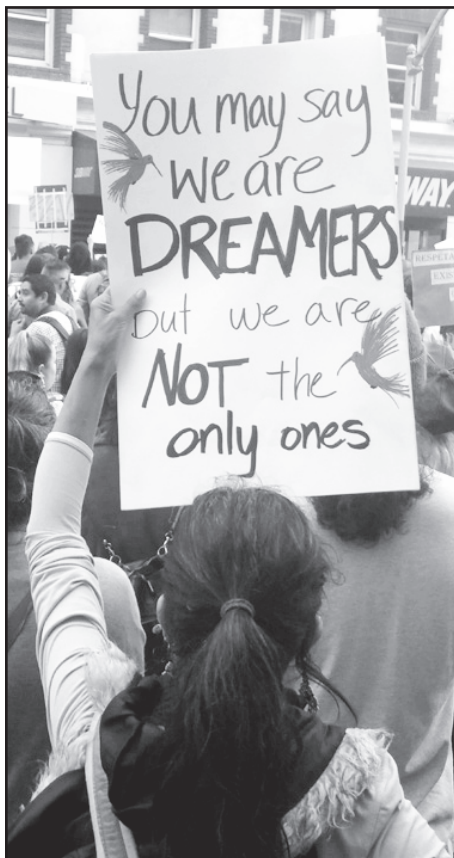 You may say
we are
DREAMERS
but we are
NOT the
only ones
WAY
RESPETA
EXIS